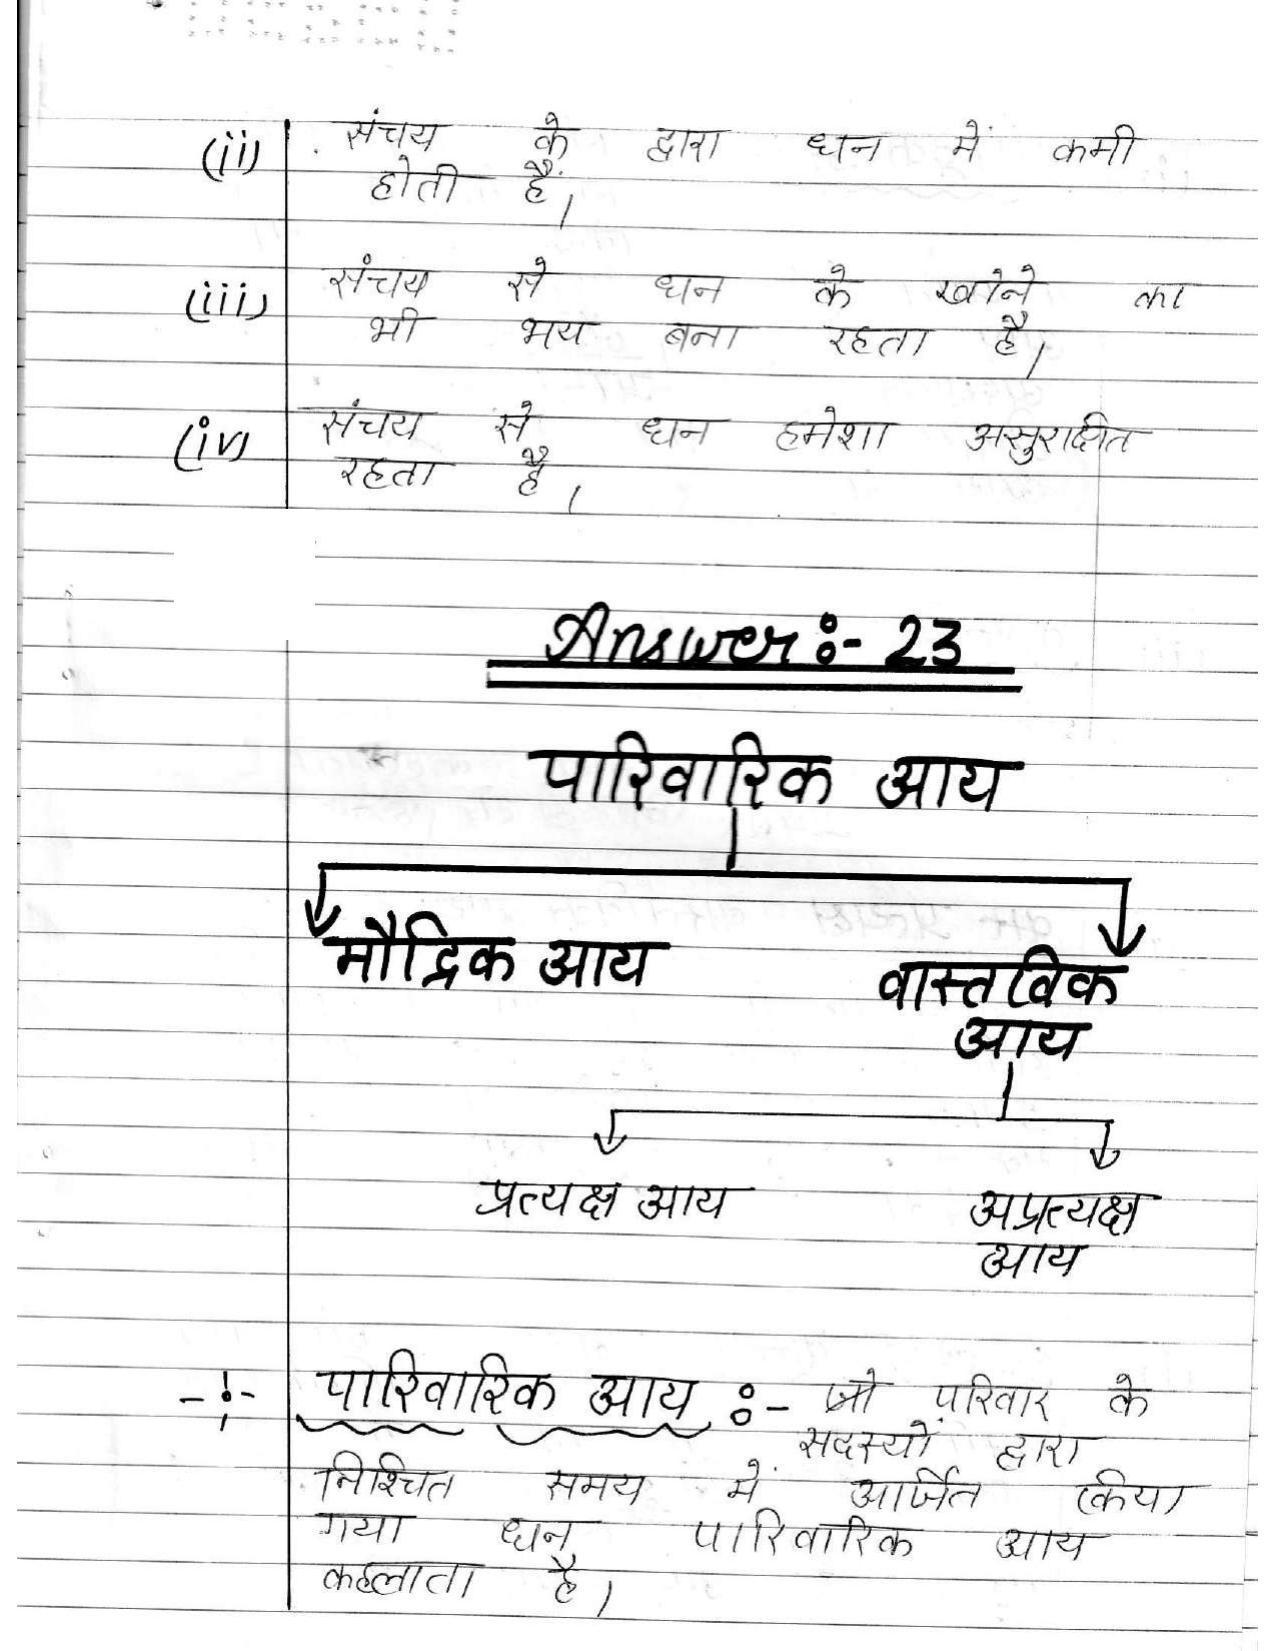 (ii) संचय के द्वारा धन में कमी
होती हैं।
(iii) संचय से धन के खोने का
भी भय बना रहता है।
(iv) संचय से धन हमेशा असुरक्षीत
रहता है।
Answer :- 23
पारिवारिक आय
मौद्रिक आय
वास्तविक
आय
प्रत्यक्ष आय
अप्रत्यक्ष
आय
पारिवारिक आय :- जो परिवार के
सदस्यों द्वारा
निश्चित समय में आर्जित किया
गया धन पारिवारिक आय
कहलाता है।